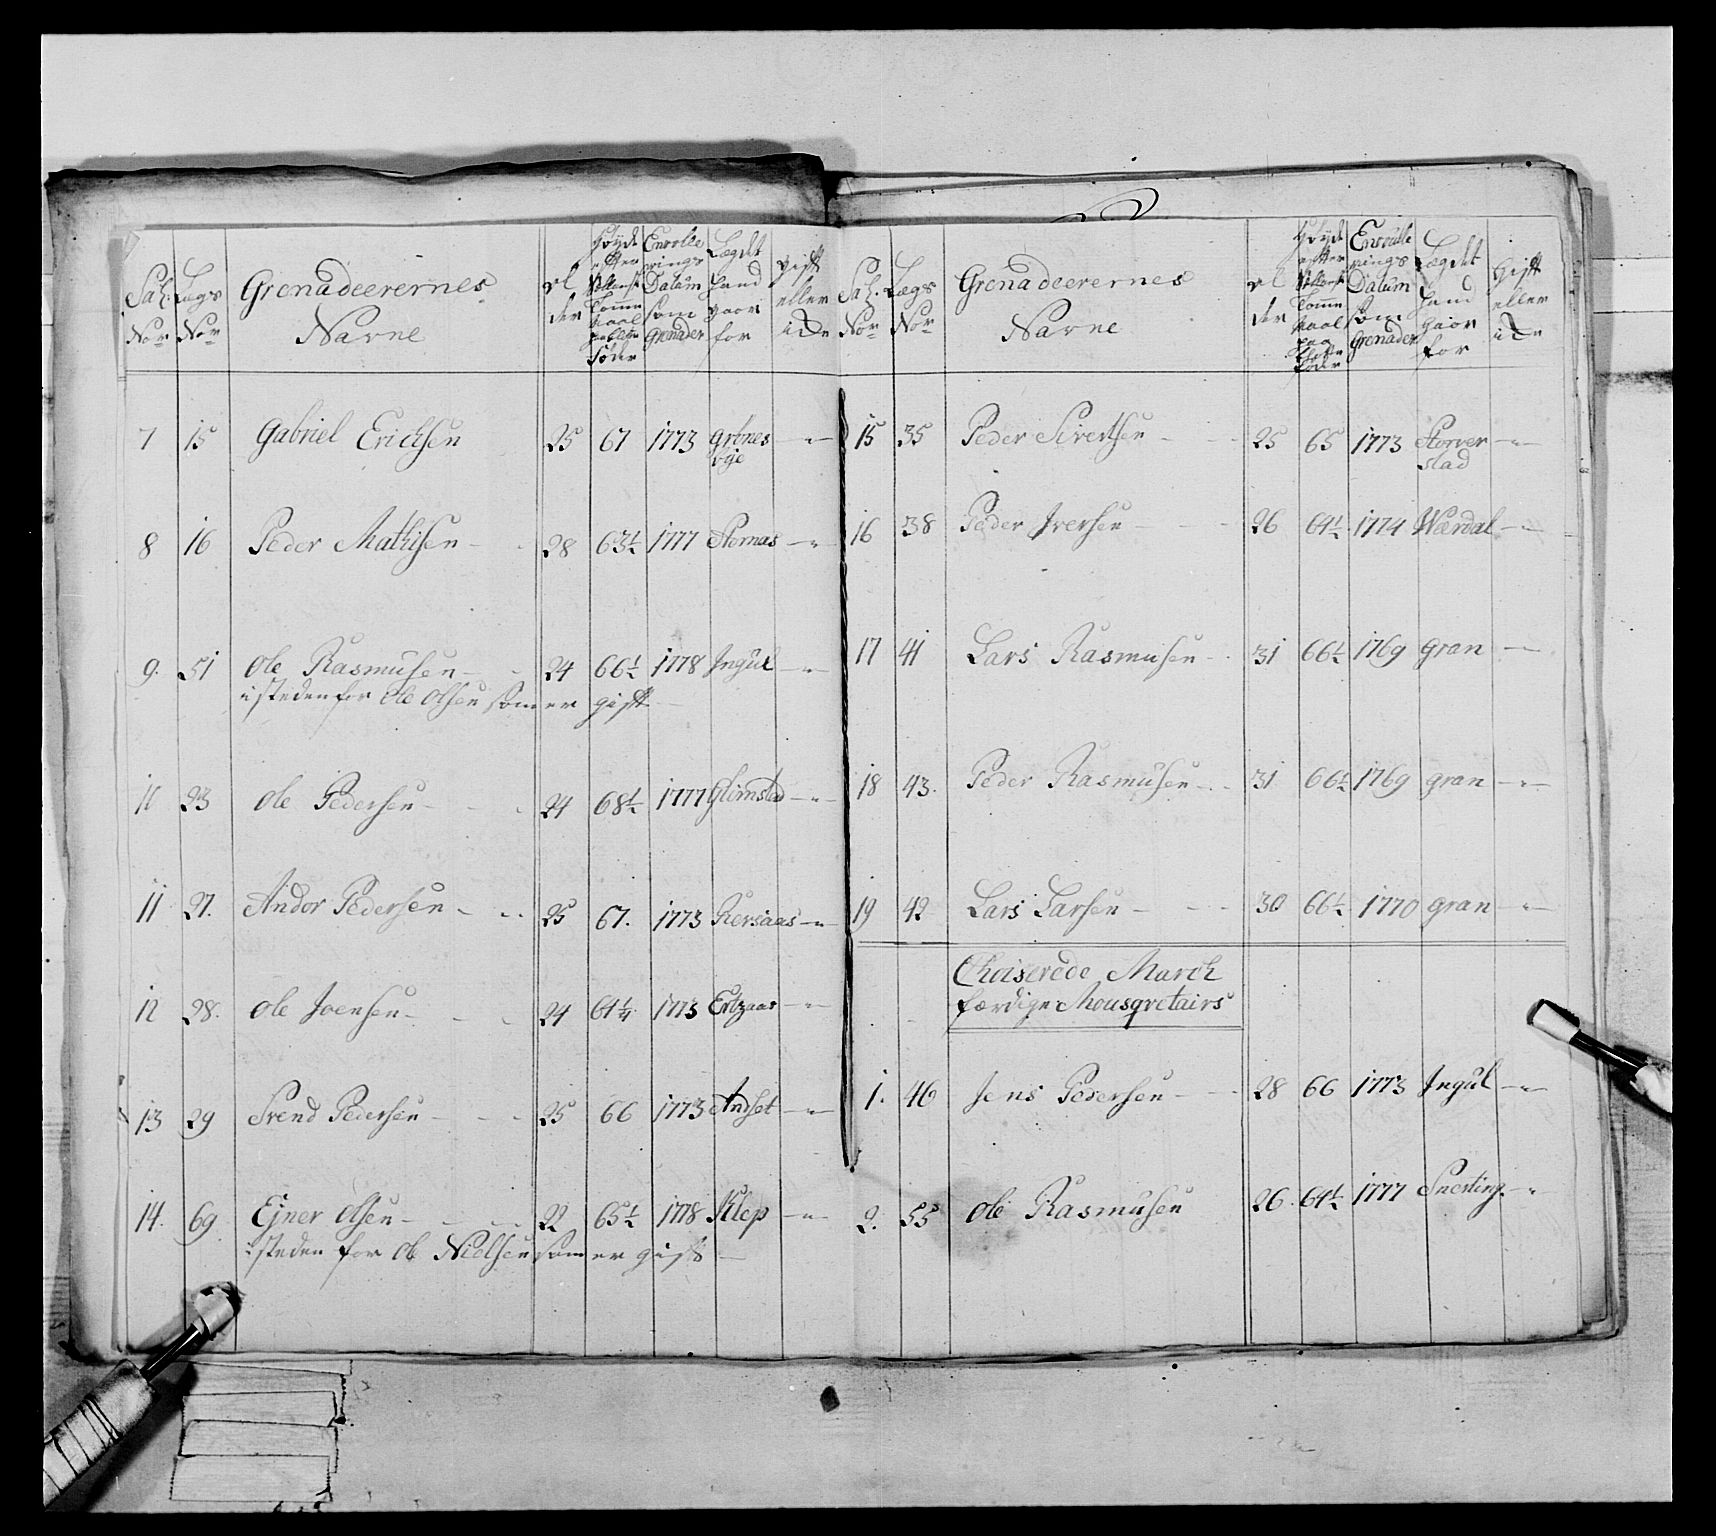 Sal. Nor Lægs Nor Grenadeerernes Navne Al der Høyde efter Tomme Maal Enrolle rings Datum som Grenader Lægdet hand gaar for gift eller icke
7 15 Gabriel Erichsen 25 67 1773 Grønes
øye
8 16 Peder Mathisen 28 63½ 1777
9. 51 Ole Rasmusen 24 66½ 1778 Ingul
i steden for Ole Olsen som er gift
10 23 Ole Pedersen 24 68½ 1777 Glimstad
11 27. Andor Pedersen 25 67. 1773
12 28. Ole Joensen 24 64¼ 1773
13 29 Svend Pedersen 25 66 1773 Andset
14. 69 Ejner Olsen 22 65½ 1778 Klep
i steden for Ole Nielsen som er gift
Sal. Nor Lægs Nor Grenadeerernes Navne Al der Høyde efter Tomme Maal paa Enroulle rings Datum som Grenader Lægdet hand gaar for Gift eller icke
15 35 Peder Sivertsen 25 65 1773 Storver
stad
16 38 Peder Iversen 26 64½ 1774 Wærdal
17 41 Lars Rasmusen 31 66½ 1769 Gran
18 43. Peder Rasmusen 31 66½ 1769 Gran
19 42 Lars Larsen 30 66½ 1770 Gran
Choiserede March
færdige Mousqvetairs
1. 46 Jens Pedersen 28 66 1773 Ingul
2. 55 Ole Rasmusen 26 64½ 1777 Snerting